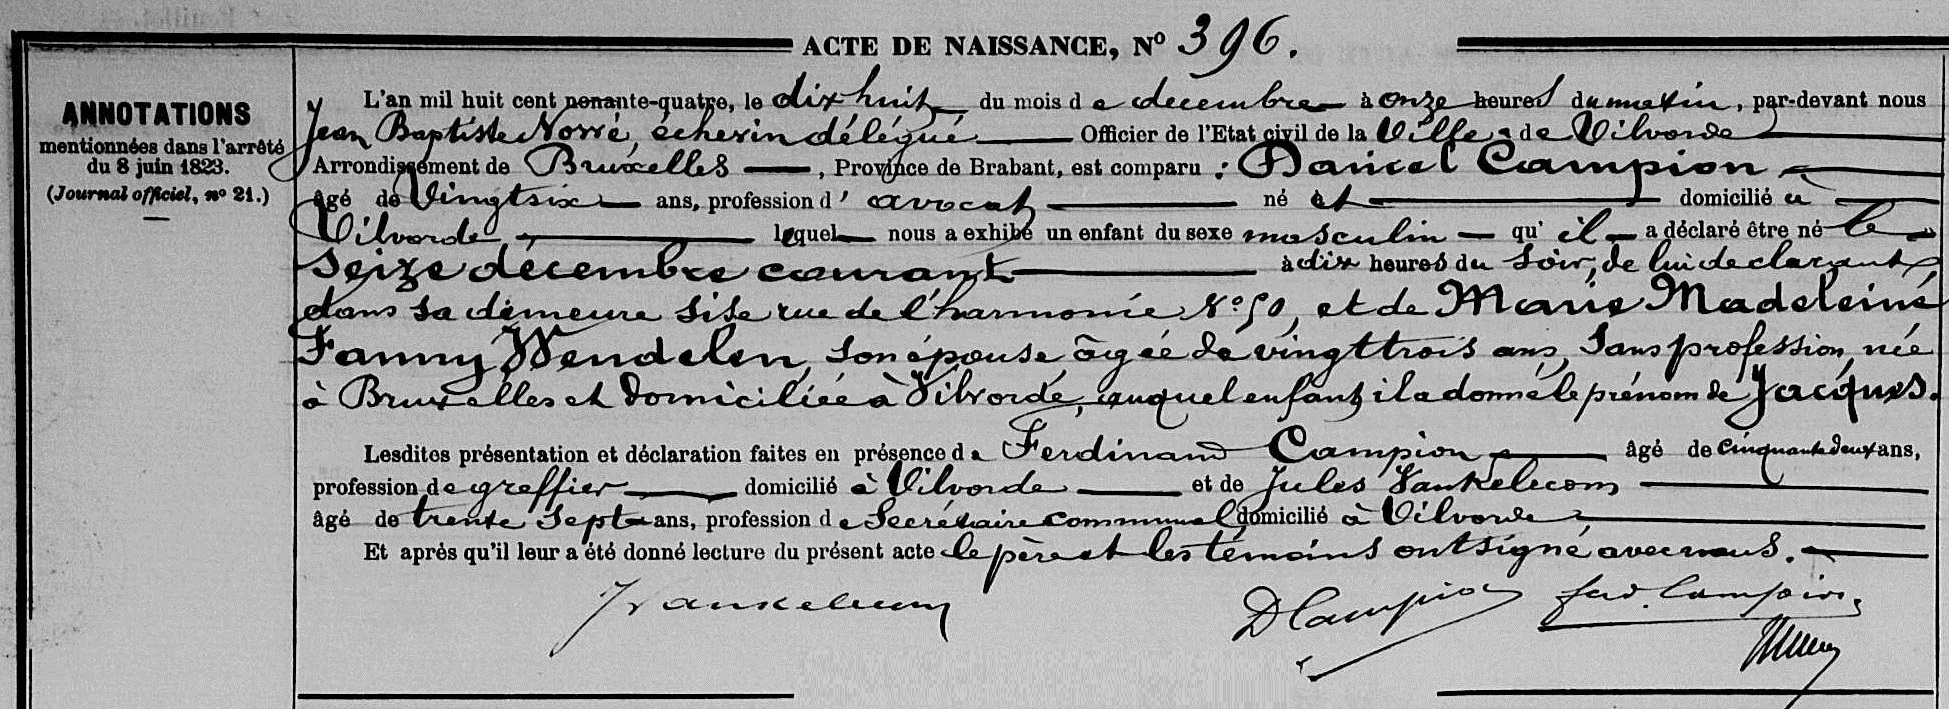 ACTE DE NAISSANCE, Nº 396.
ANNOTATIONS
mentionnées dans l'arrêté
du 8 juin 1823.
(Journal officiel, nº 21.)
L'an mil huit cent nonante-quatre, le dix huit du mois de decembre à onze heures du matin, par-devant nous
Jean Baptiste Norré, échevin délégué Officier de l'Etat civil de la Ville de Vilvorde
Arrondissement de Bruxelles, Province de Brabant, est comparu : Daniel Campion
âgé de Vingt six ans, profession d'avocat né et domicilié à
Vilvorde, lequel nous a exhibé un enfant du sexe masculin qu'il a déclaré être né le
seize decembre courant à dix heures du soir, de lui declarant,
dans sa demeure sise rue de l'harmonie Nº 50, et de Marie Madeleine
Fanny Wendelen, son épouse, âgée de vingt trois ans, sans profession, née
à Bruxelles et domiciliée à Vilvorde, auquel enfant il a donné le prénom de Jacques.
Lesdites présentation et déclaration faites en présence de Ferdinand Campion âgé de cinquante deux ans,
profession de greffier domicilié à Vilvorde et de Jules Vankelecom
âgé de trente sept ans, profession de Secrétaire communal, domicilié à Vilvorde
Et après qu'il leur a été donné lecture du présent acte le père et les témoins ont signé avec nous.
J Vankelecom D Campion ferd. Campion